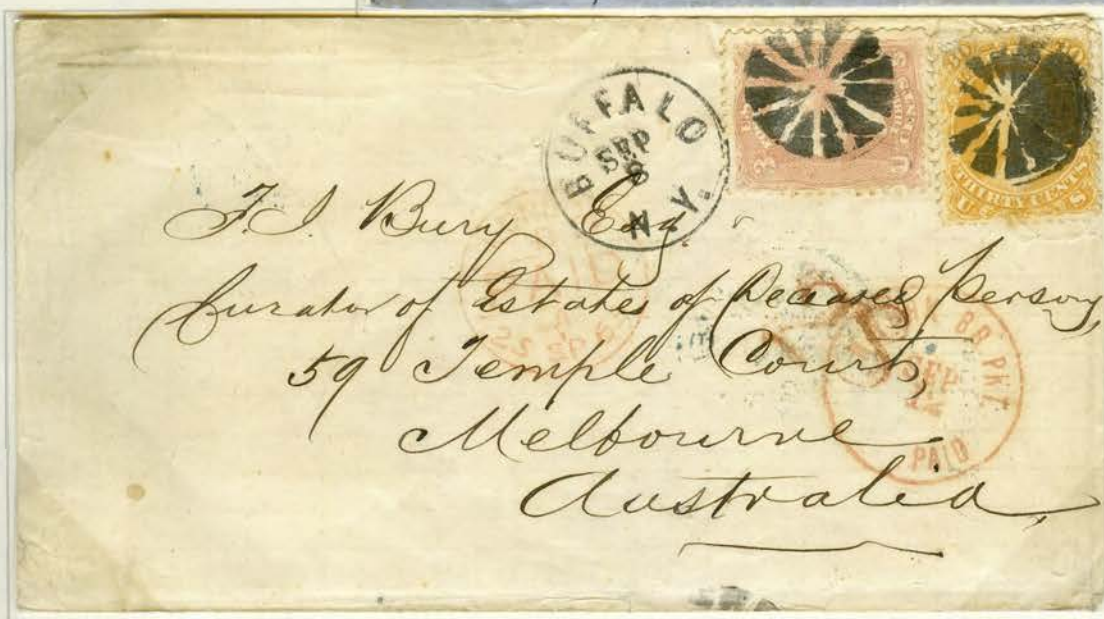 BUFFALO
SEP
8
N.Y.
U 3 S
THIRTY CENTS
U S
F. J. Bury Esq.
Curator of Estates of Deceased Persons,
59 Temple Court,
Melbourne
Australia,
BR PKT
SEP
PAID